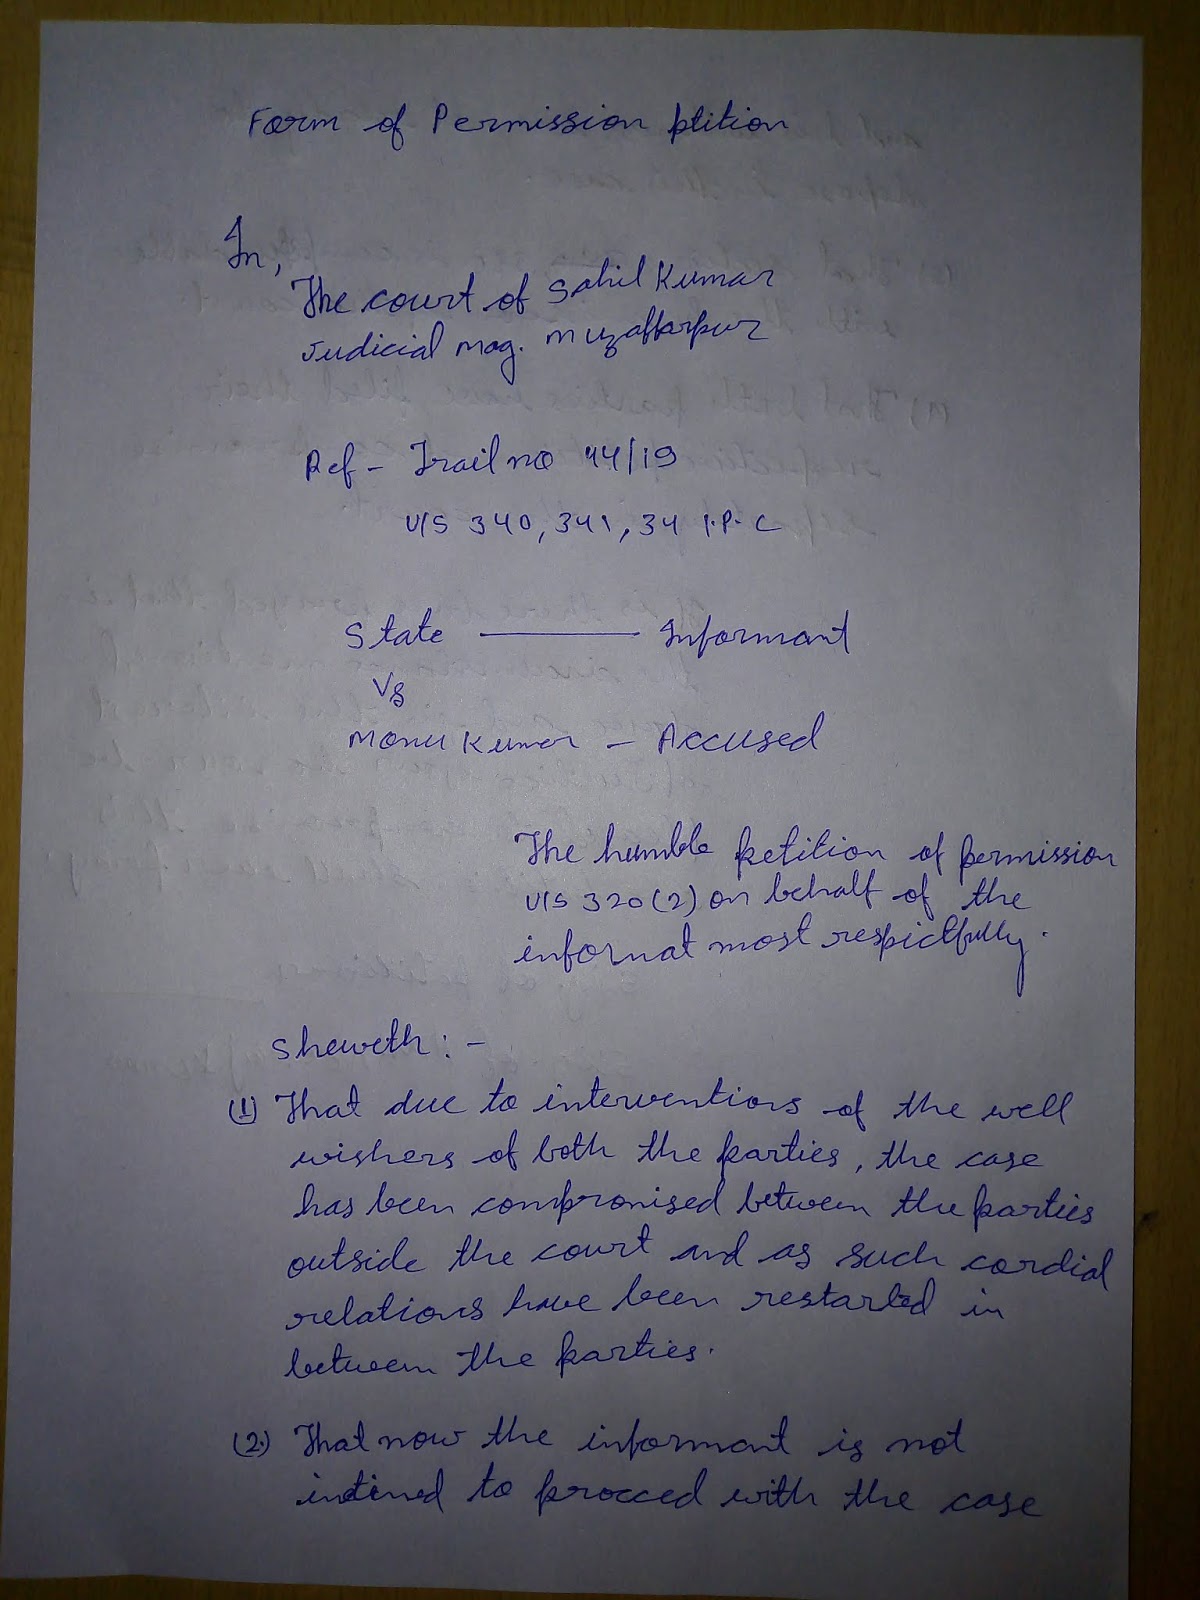 Form of Permission ptition
In,
The court of Sahil Kumar
Judicial mag. muzaffarpur
Ref - Trail no 44/19
U/S 340, 341, 34 I.P.C
State ——— Informant
Vs
Monu Kumar - Accused
The humble petition of permission
U/S 320(2) on behalf of the
informat most respictfully.
Sheweth : -
(1) That due to interventions of the well
wishers of both the parties, the case
has been compromised between the parties
outside the court and as such cordial
relations have been restarted in
between the parties.
(2) That now the informant is not
intined to procced with the case